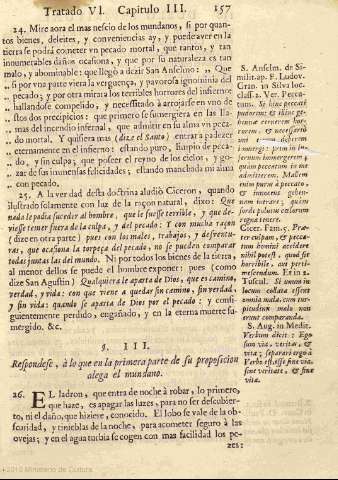 Tratado VI. Capitulo III. 157
24. Mire aora el mas nescio de los mundanos, si por quan-
tos bienes, deleites, y conveniencias ay, y puede aver en la
tierra se podrà cometer vn pecado mortal, que tantos, y tan
innumerables daños ocasiona, y que por su naturaleza es tan
malo, y abominable: que llegò a dezir San Anselmo: „ Que
„ si por vna parte viera la verguença, y pavorosa ignominia del
„ pecado; y por otra mirara los terribles horrores del infierno
„ hallandose compelido, y necessitado à arrojarse en vno de
„ estos dos precipicios: que primero se sumergiera en las lla-
„ mas del incendio infernal, que admitir en su alma vn peca-
„ do mortal. Y quisiera mas (dize el Santo) entrar a padezer
„ eternamente en el infierno: estando puro, limpio de peca-
„ do, y sin culpa; que poseer el reyno de los cielos, y go-
„ zar de sus immensas felicidades; estando manchada mi alma
„ con pecado.
25. A la verdad desta doctrina aludiò Ciceron, quando
ilustrado solamente con luz de la raçon natural, dixo: Que
nada le podia suceder al hombre, que le fuesse terrible, y que de-
viesse temer fuera de la culpa, y del pecado: Y con mucha raçon
(dize en otra parte) pues con los males, trabajos, y desventu-
ras, que ocasiona la torpeza del pecado, no se pueden comparar
todas juntas las del mundo. Ni por todos los bienes de la tierra,
al menor dellos se puede el hombre exponer: pues (como
dize San Agustin) Qualquiera le aparta de Dios, que es camino,
verdad, y vida: con que viene a quedar sin camino, sin verdad,
y sin vida: quando se aparta de Dios por el pecado: y consi-
guientemente perdido, engañado, y en la eterna muerte su-
mergido. &c.
§. III.
Respondese, à lo que en la primera parte de su proposicion
alega el mundano.
26. EL ladron, que entra de noche à robar, lo primero,
que haze, es apagar las luzes, para no ser descubier-
to, ni el daño, que hiziere, conocido. El lobo se vale de la ob-
scuridad, y tinieblas de la noche, para acometer seguro à las
ovejas; y en el agua turbia se cogen con mas facilidad los pe-
zes:
S. Anselm. de Si-
milit. ap. F. Ludov.
Gran. in Silva loc.
class. 2. Ver. Pecca-
tum. Si hinc peccati
pudorem; & illinc ge-
henna cernerem hor-
rorem, & necessariò
uni eorum deberem
immergi: prius in in-
fernum immergerem,
quàm peccatum in me
admitterem. Mallem
enim purus à peccato,
& innocens gehen-
nam intrare; quàm
sorde pollutus cœlorum
regna tenere.
Cicer. Fam. 5. Præ-
ter culpam, & pecca-
tum homini accidere
nihil potest, quod sit
horribile, aut perti-
mescendum. Et in 2.
Tuscul. Si unum in
locum collata essent
omnia mala, cum tur-
pitudinis malo non
erunt comparanda.
S. Aug. in Medit.
Verbum dicit: Ego
sum via, veritas, &
vita; separari ergò à
Verbo est esse sine via,
sine veritate, & sine
vita.
©2010 Ministerio de Cultura